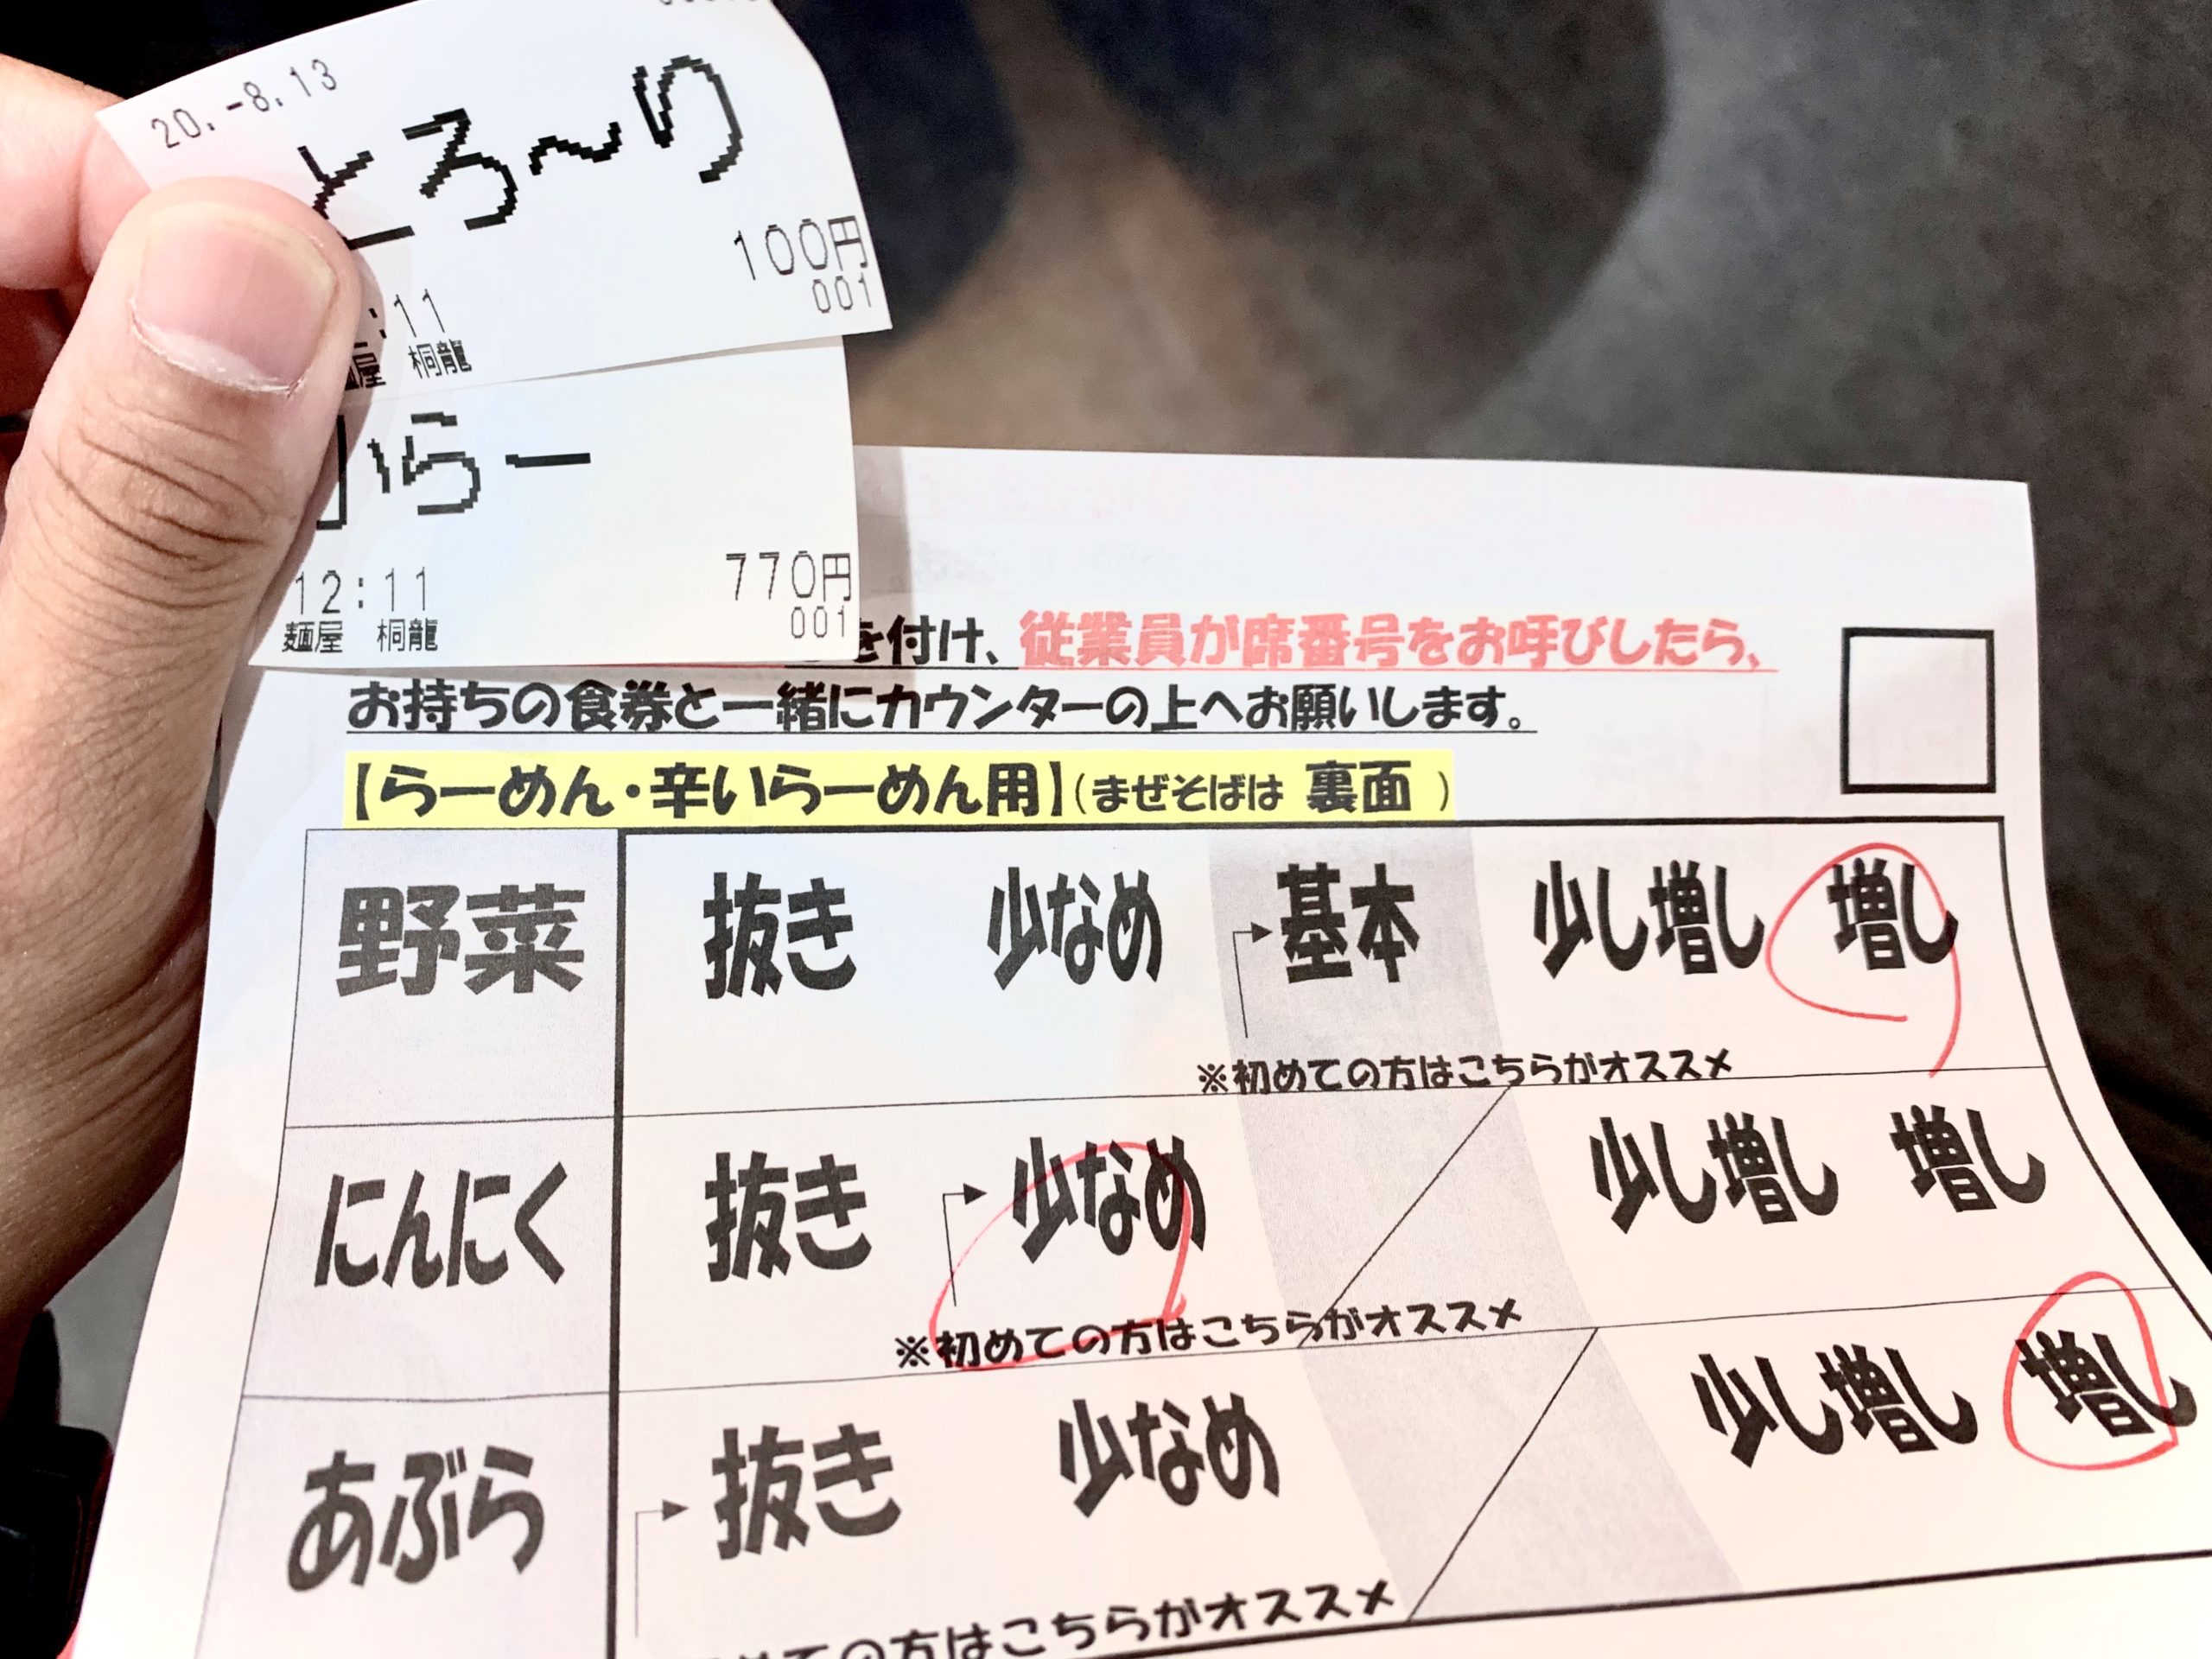 20.-8.13
とろ〜り
100円
001
:11
屋 桐龍
いらー
770円
12:11
001
麺屋 桐龍
を付け、従業員が席番号をお呼びしたら、
お持ちの食券と一緒にカウンターの上へお願いします。
【らーめん・辛いらーめん用】(まぜそばは 裏面 )
野菜 抜き 少なめ 基本 少し増し 増し
※初めての方はこちらがオススメ
にんにく 抜き 少なめ 少し増し 増し
※初めての方はこちらがオススメ
あぶら 抜き 少なめ 少し増し 増し
めての方はこちらがオススメ